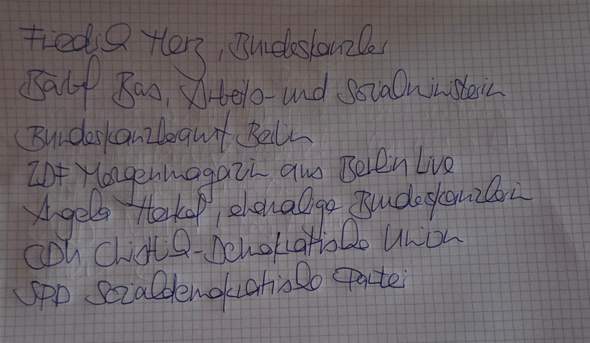 Friedrich Merz, Bundeskanzler
Bärbel Bas, Arbeits- und Sozialministerin
Bundeskanzleramt Berlin
ZDF Morgenmagazin aus Berlin Live
Angela Merkel, ehemalige Bundeskanzlerin
CDU Christlich-Demokratische Union
SPD Sozialdemokratische Partei